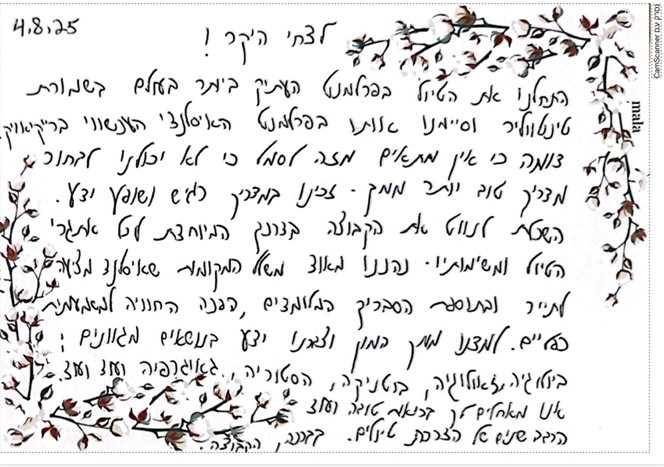 4.8.25
לצחי היקר !
התחלנו את הטיול בפרלמנט העתיק ביותר בעולם בשמורת
טינגווליר וסיימנו אותו בפרלמנט האיסלנדי העכשווי ברייקיאויק.
דומה כי אין מתאים מזה לסמל כי לא יכולנו לבחור
מדריך טוב יותר ממך. זכינו במדריך רגיש ושופע ידע.
השכלת לנווט את הקבוצה בדרכך המיוחדת לכל אתגרי
הטיול ומשימותיו. נהנינו מאוד משלל המקומות שאיסלנד מציעה
לתייר ובתוספת הסבריך המלומדים, הפכה החוויה למשמעותית
כפליים. למדנו ממך המון וצברנו ידע בנושאים מגוונים:
ביולוגיה, גאולוגיה, בוטניקה, הסטוריה, גאוגרפיה ועוד ועוד.
אנו מאחלים לך בריאות טובה ועוד
הרבה שנים של הדרכת טיולים. בברכה, הקבוצה.
mala
CamScanner נסרק עם